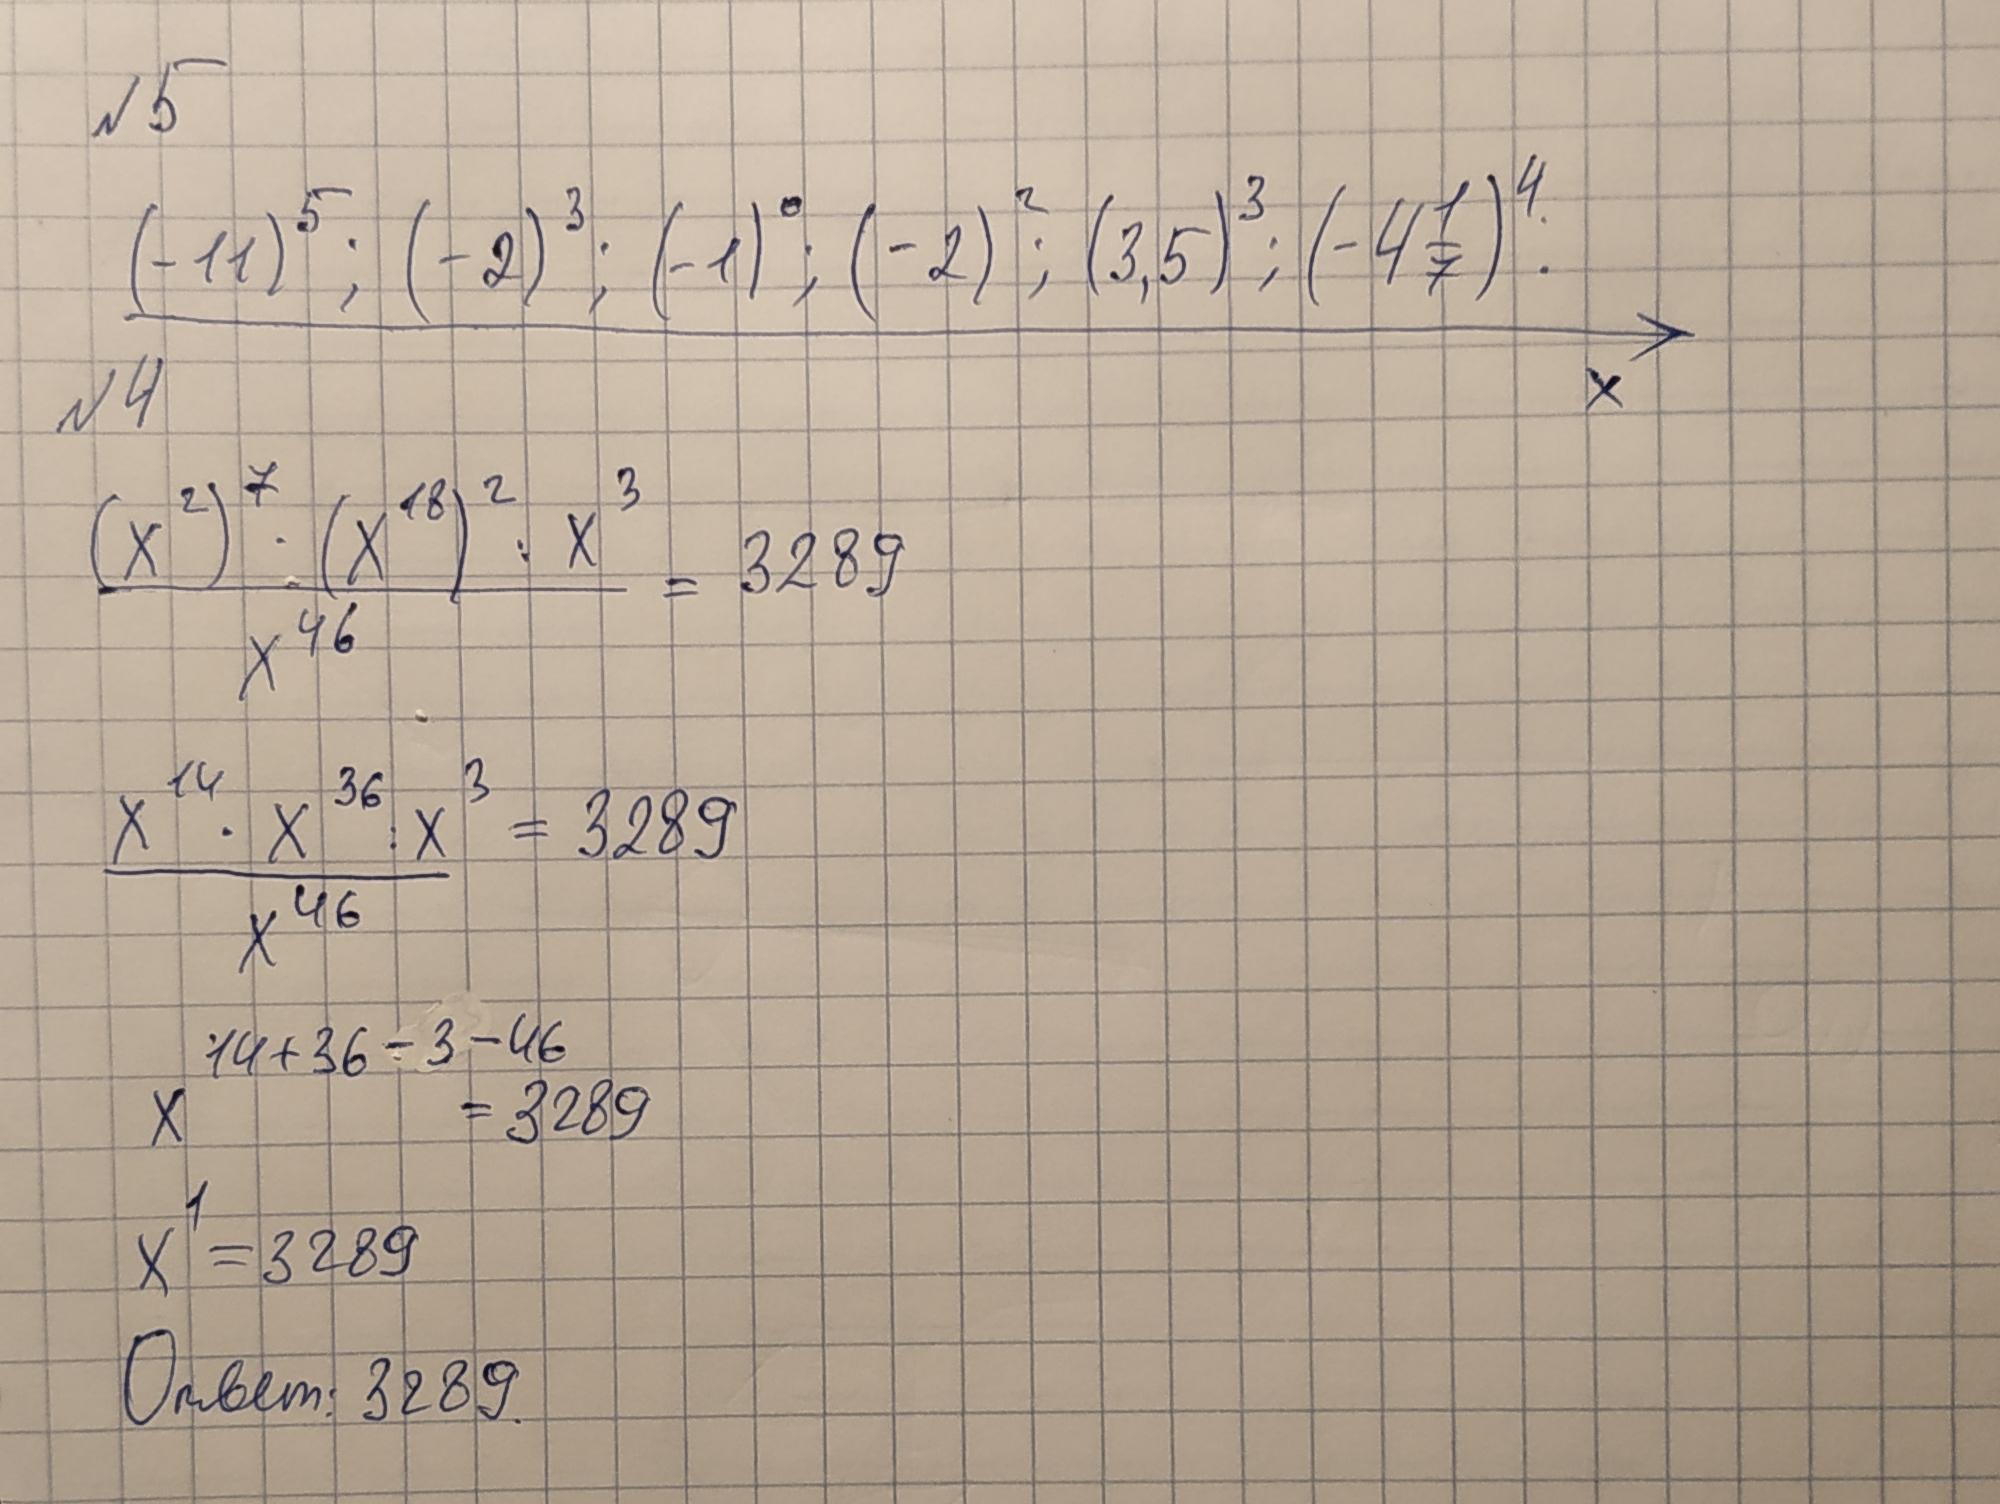 №5
(-11)^5; (-2)^3; (-1)^0; (-2)^2; (3,5)^3; (-4 1/7)^4.
x
№4
((x^2)^7 · (x^18)^2 : x^3) / x^46 = 3289
(x^14 · x^36 : x^3) / x^46 = 3289
x^(14+36-3-46) = 3289
x^1 = 3289
Ответ: 3289.